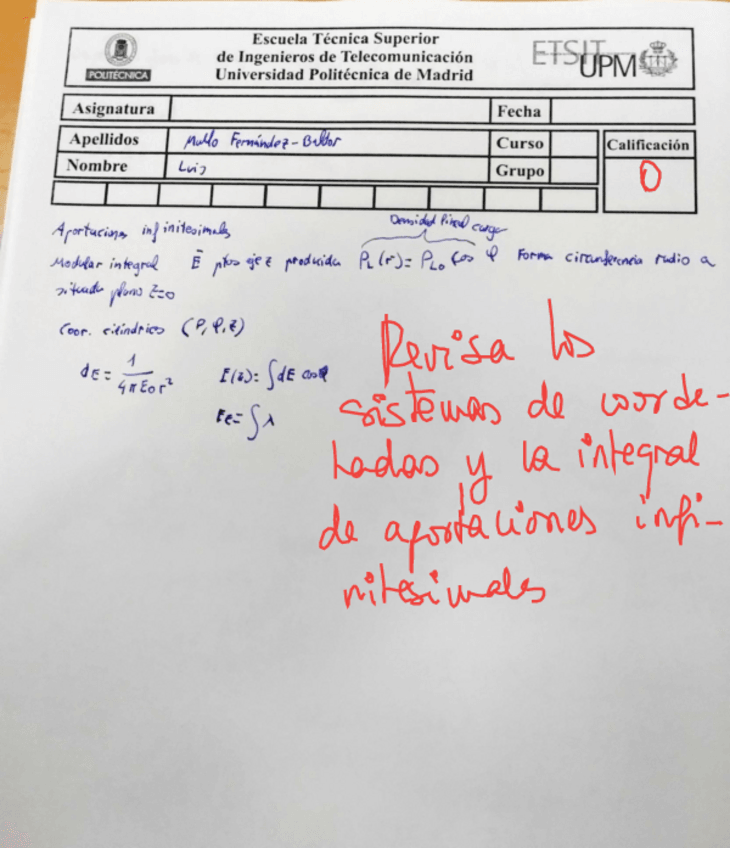 Escuela Técnica Superior
de Ingenieros de Telecomunicación
Universidad Politécnica de Madrid
POLITÉCNICA
ETSIT
UPM
Asignatura
Fecha
Apellidos Fernández-
Curso
Calificación
Nombre Luis
Grupo
0
Aportaciones infinitesimales
Densidad lineal carga
Modular integral E ptos eje z producida ρL(r) = ρL0 cos φ Forma circunferencia radio a
situada plano z=0
Coor. cilíndricas (ρ, φ, z)
dE = 1/4πε0r² E(z) = ∫dE cosφ
= ∫λ
Revisa los
sistemas de coorde-
nadas y la integral
de aportaciones infi-
nitesimales